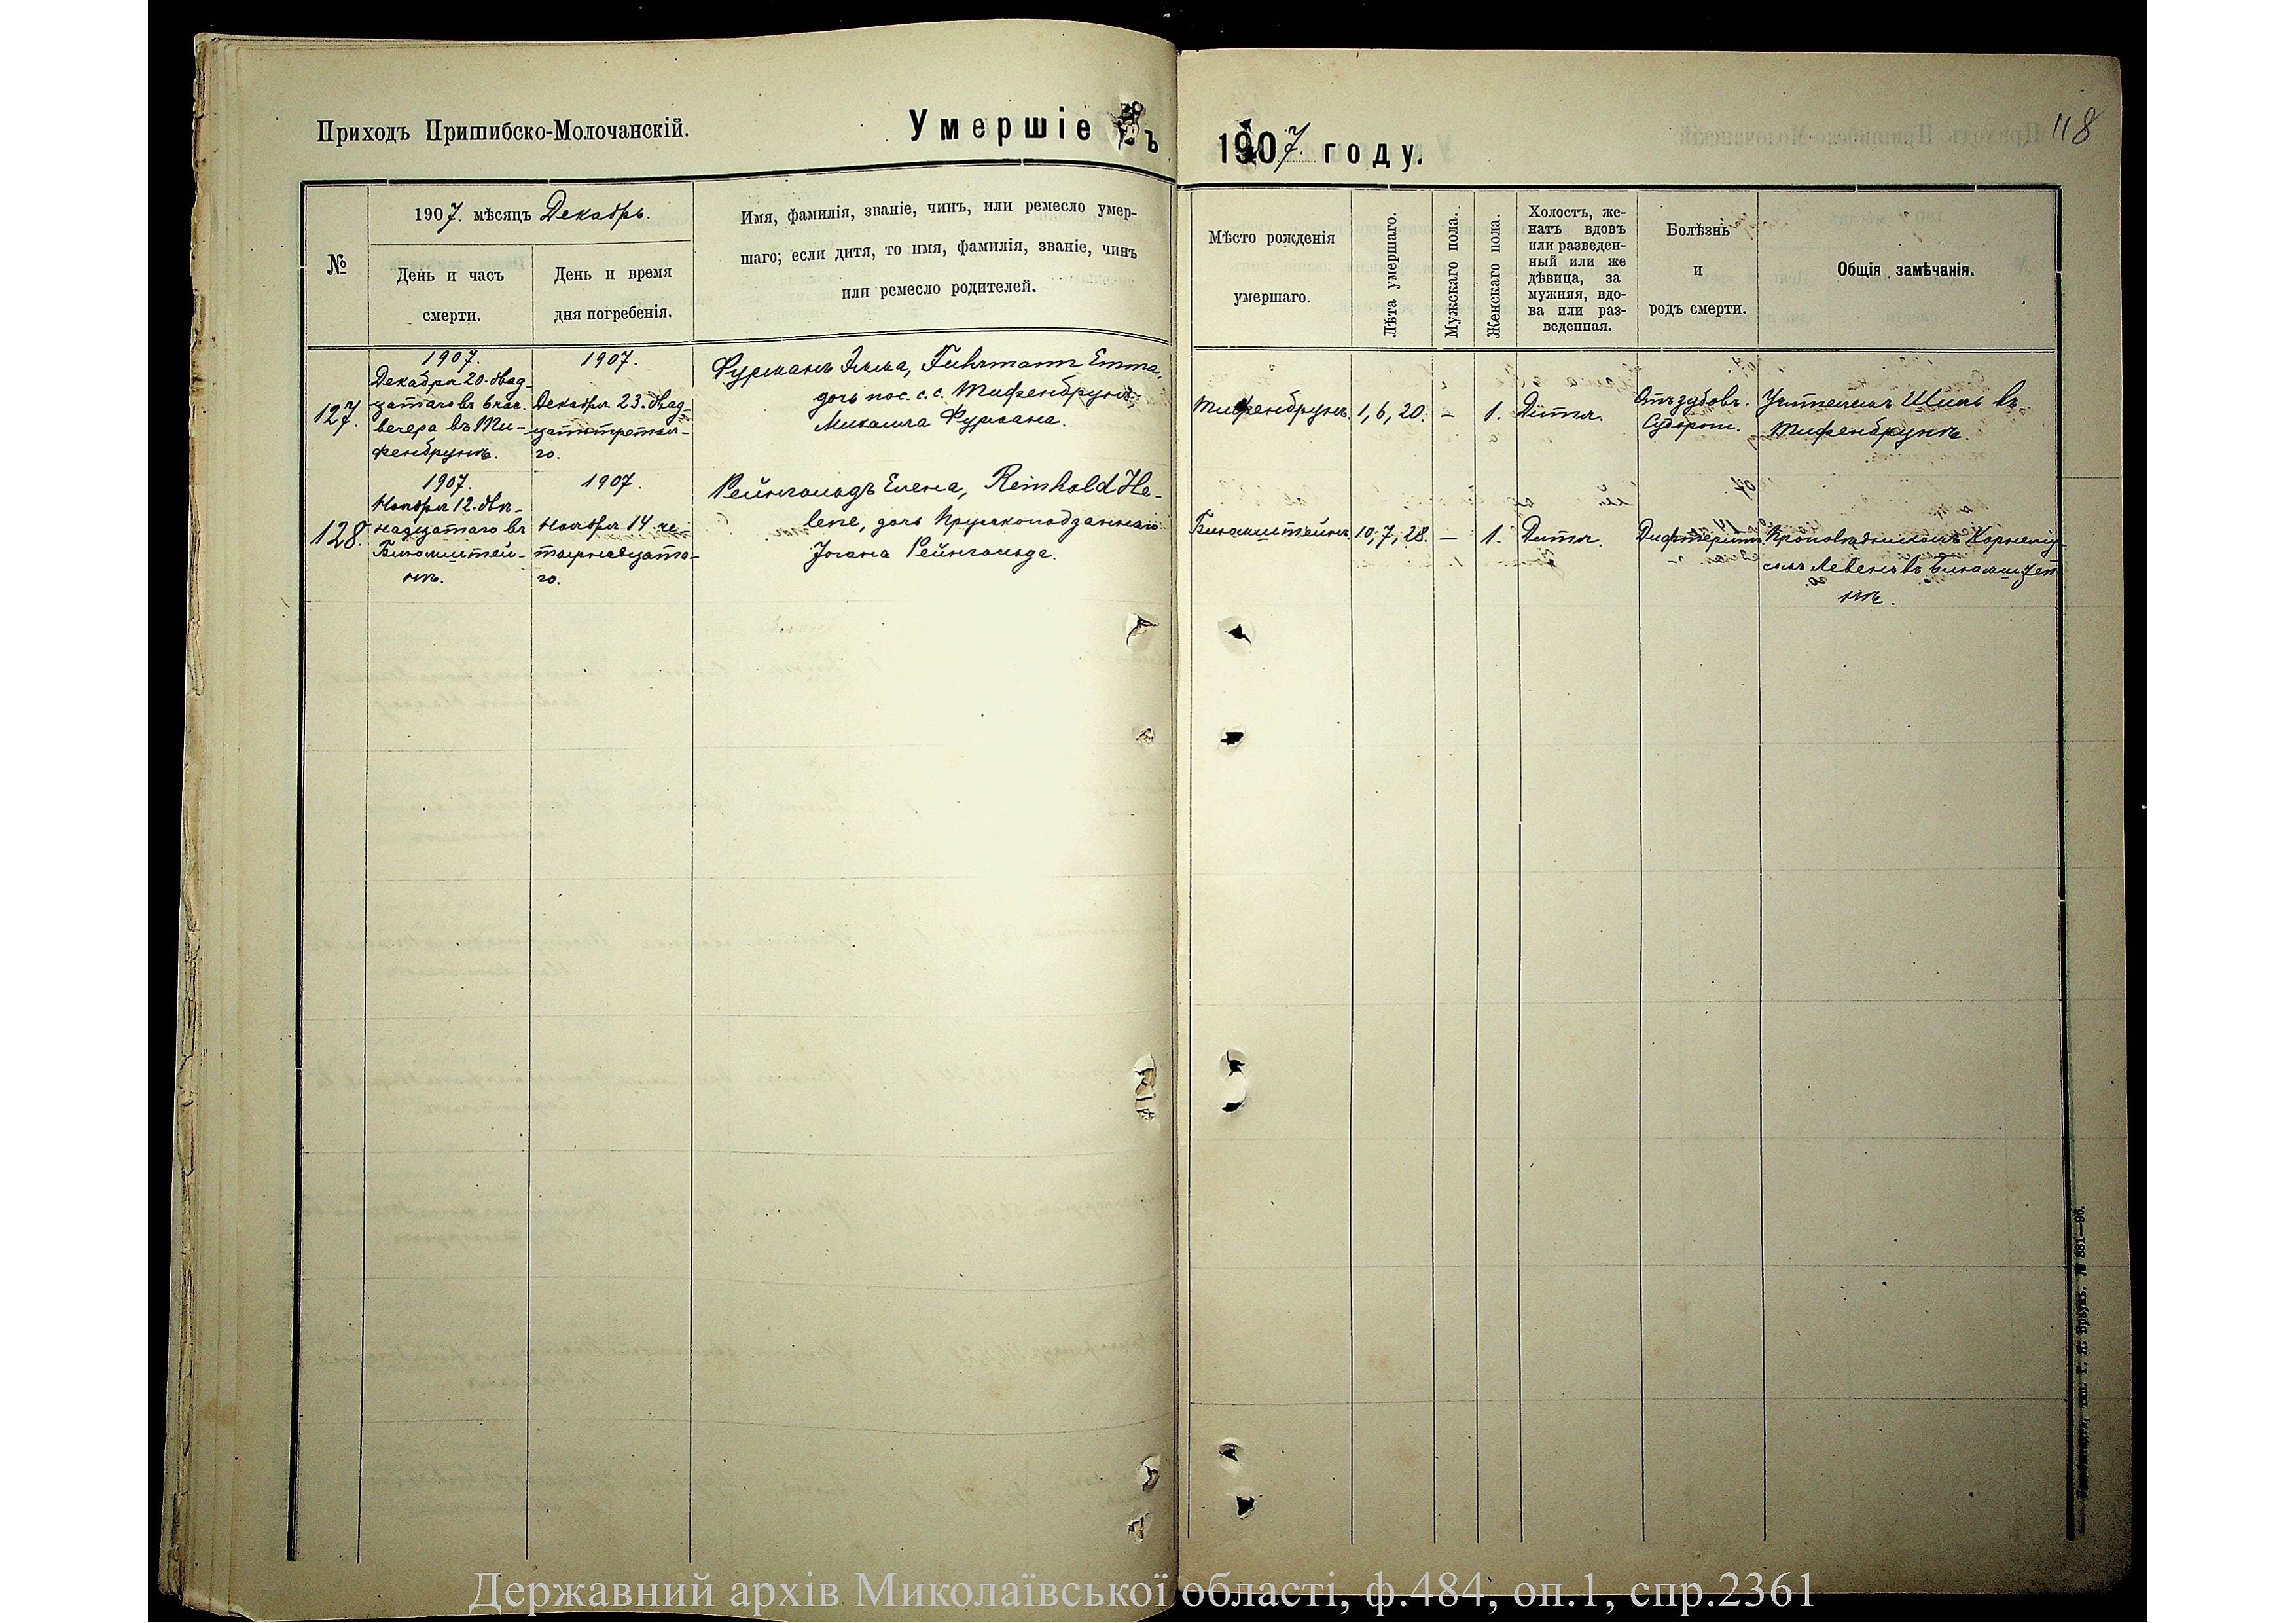 Приходъ Пришибско-Молочанскій.
Умершіе въ 1907 году.
118
№
1907. мѣсяцъ Декабрь.
День и часъ
смерти.
День и время
дня погребенія.
Имя, фамилія, званіе, чинъ, или ремесло умер-
шаго; если дитя, то имя, фамилія, званіе, чинъ
или ремесло родителей.
Мѣсто рожденія
умершаго.
Лѣта умершаго.
Мужскаго пола.
Женскаго пола.
Холостъ, же-
натъ вдовъ
или разведен-
ный или же
дѣвица, за
мужняя, вдо-
ва или раз-
веденная.
Болѣзнь
и
родъ смерти.
Общія замѣчанія.
127.
1907.
Декабря 20. двад-
цатаго въ 6 час.
вечера въ Ти-
фенбрунѣ.
1907.
Декабря 23. двад-
цатьтретья-
го.
Фурманъ Эмма, Fuhrmann Emma,
дочь пос. с. с. Тифенбрунъ,
Михаила Фурмана.
Тифенбрунъ.
1, 6, 20.
–
1.
Дитя.
Отъ зубовъ.
Судорги.
Учителемъ Шиль въ
Тифенбрунѣ.
128.
1907.
Ноября 12. двѣ-
надцатаго въ
Блюмштей-
нѣ.
1907.
Ноября 14. че-
тырнадцата-
го.
Рейнгольдъ Елена, Reinhold He-
lene, дочь Прусскоподданнаго
Іогана Рейнгольда.
Блюмштейнъ.
10, 7, 28.
–
1.
Дитя.
Дифтеритъ
Проповѣдникомъ Корнеліу-
сомъ Левенъ въ Блюмштей-
нѣ.
№ 881—96.
Державний архів Миколаївської області, ф.484, оп.1, спр.2361